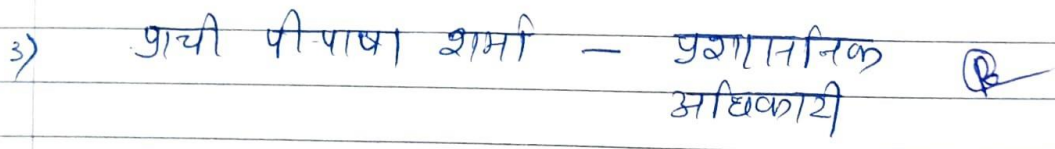 3) प्राची पी-पाषा शर्मा – प्रशासनिक
अधिकारी